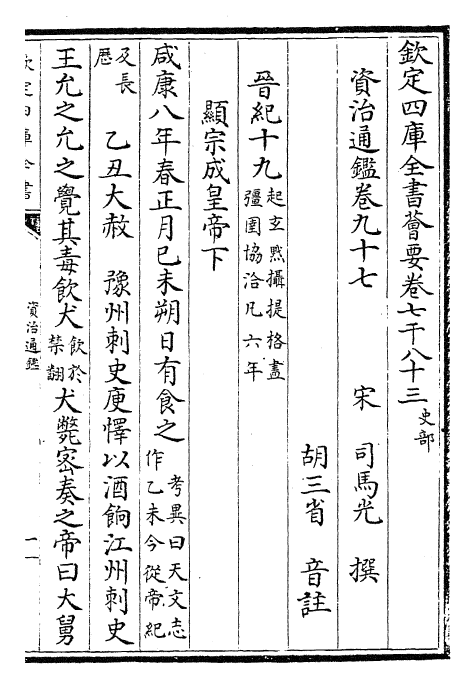 欽定四庫全書薈要卷七千八十三 史部
資治通鑑卷九十七 宋 司馬光 撰
胡三省 音註
晉紀十九 起玄黓攝提格盡彊圉協洽凡六年
顯宗成皇帝下
咸康八年春正月己未朔日有食之 考異曰天文志作乙未今從帝紀
及長厯 乙丑大赦 豫州刺史庾懌以酒餉江州刺史
王允之允之覺其毒飲犬 飲於禁翻 犬斃密奏之帝曰大舅
欽定四庫全書
資治通鑑
一